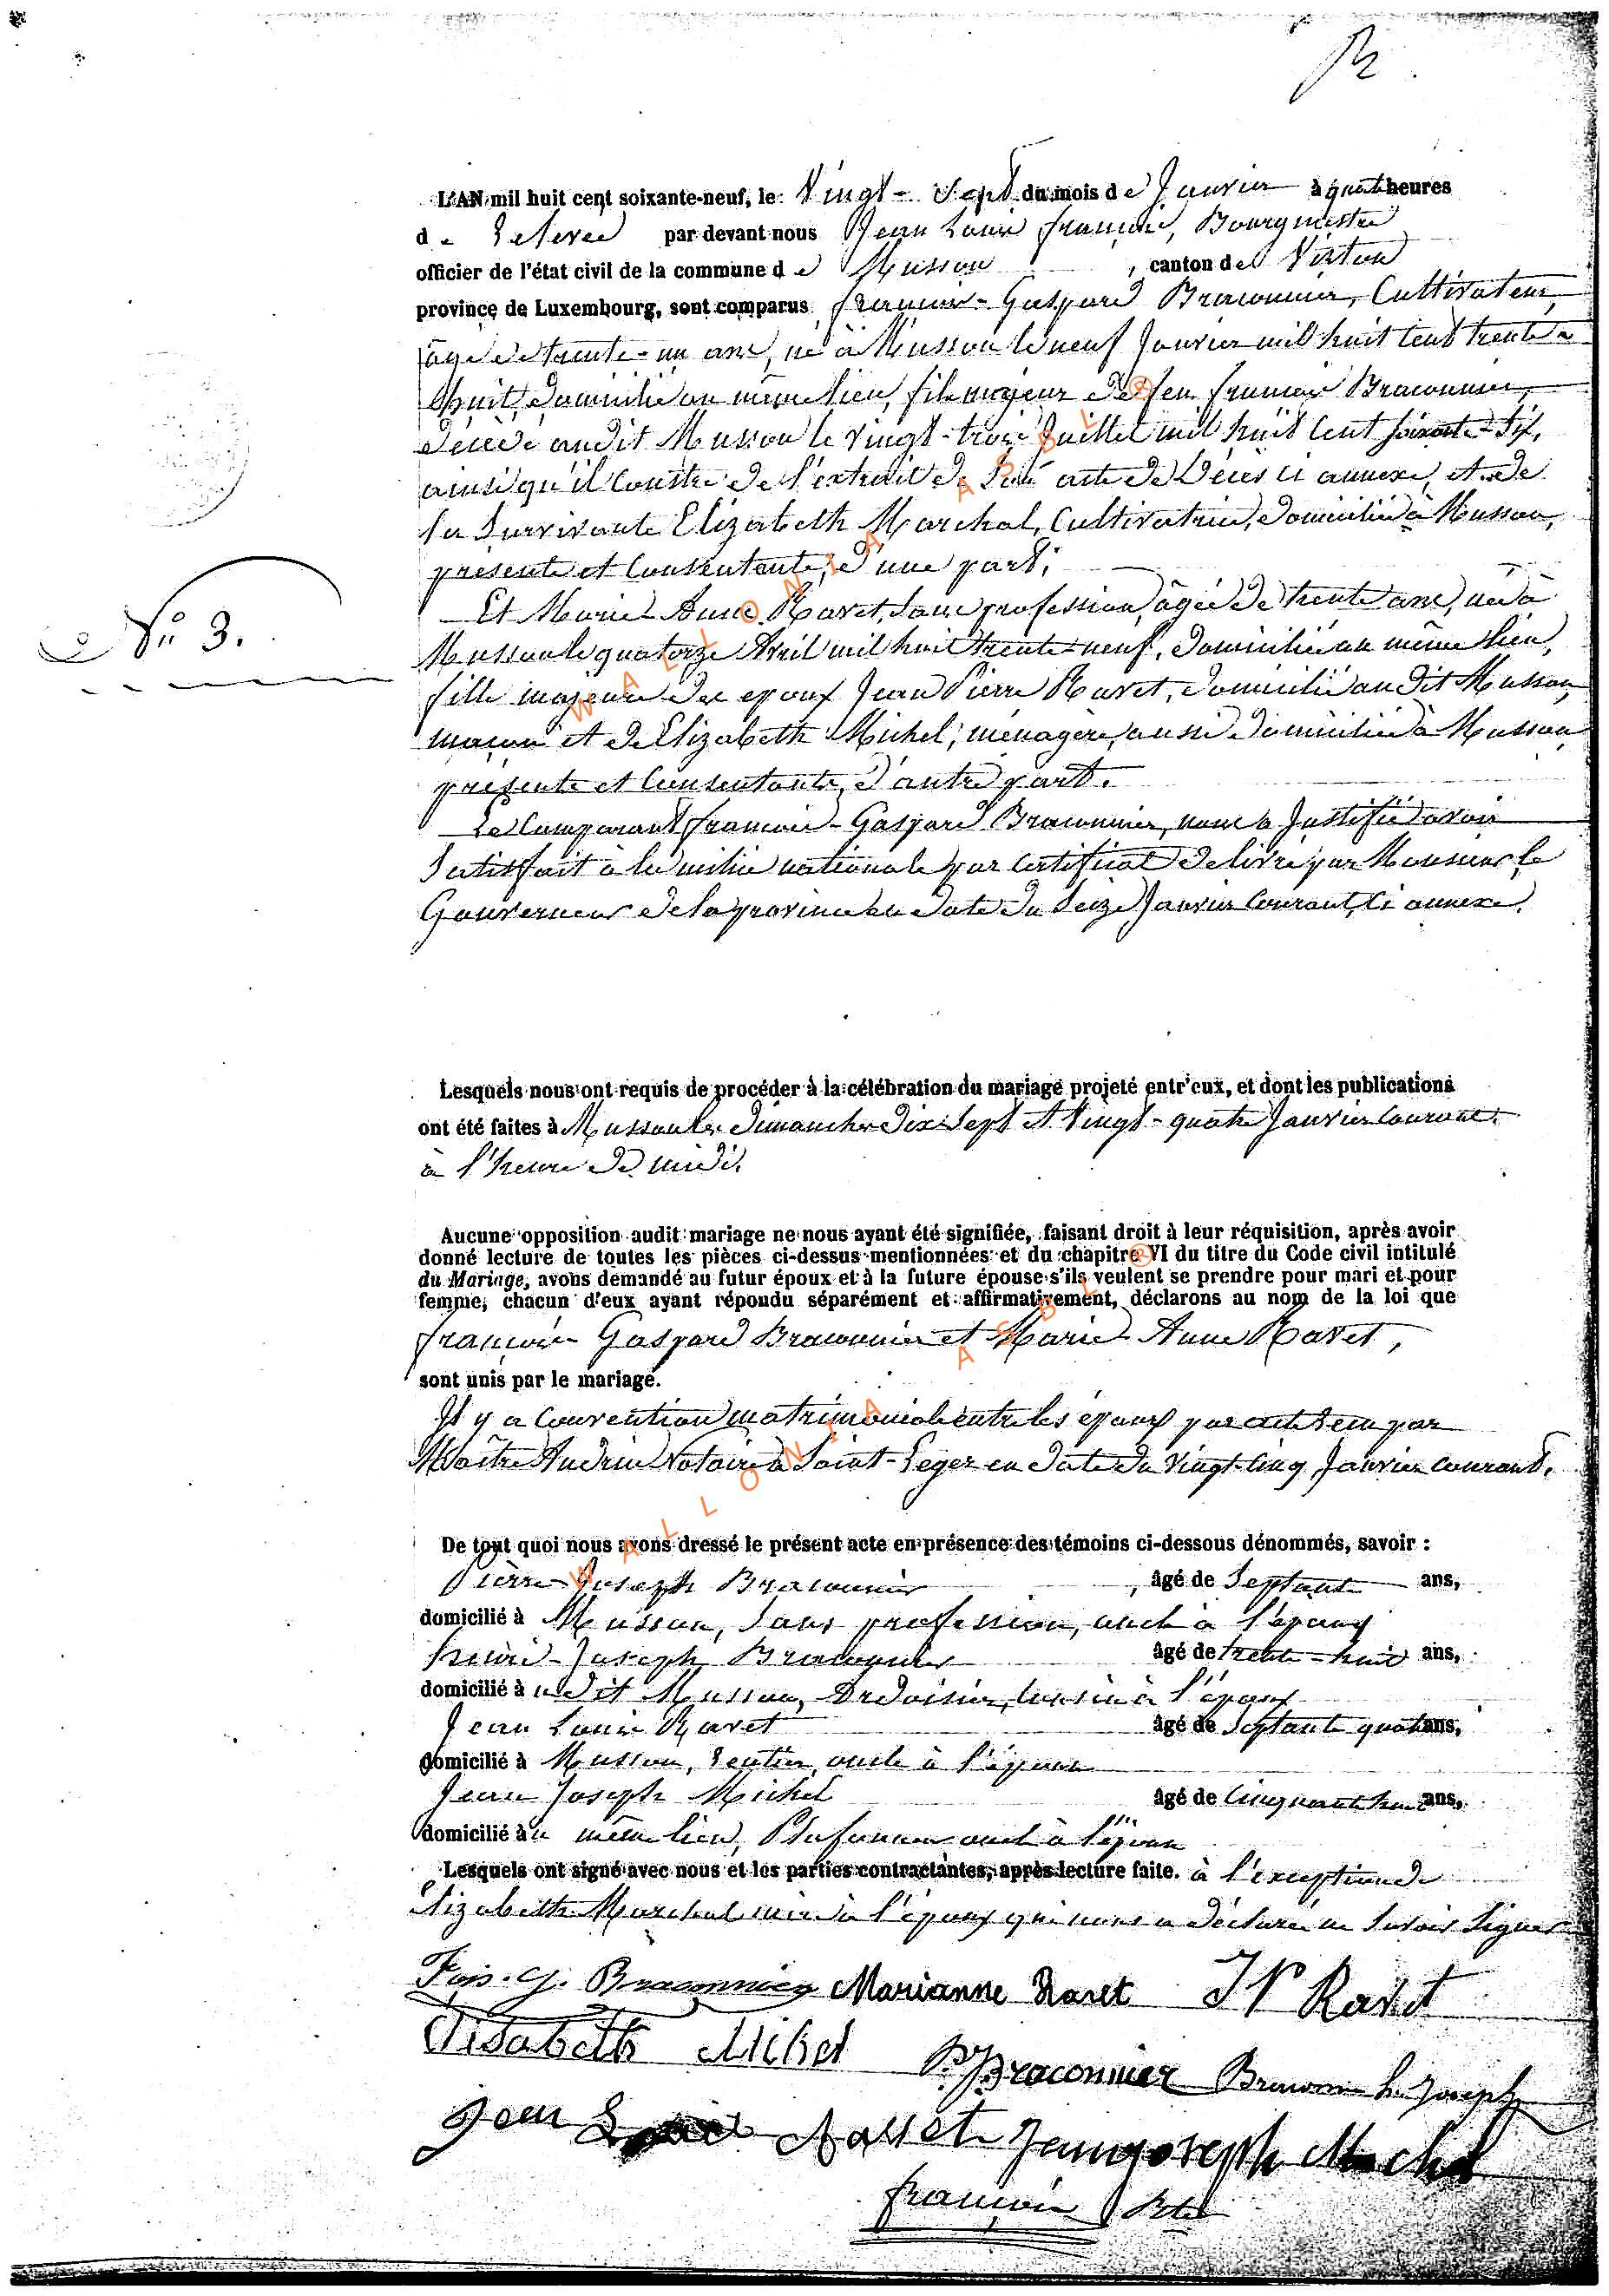 L'AN mil huit cent soixante-neuf, le Vingt-Sept du mois de Janvier à quatre heures
de Relevée par devant nous Jean Louis françois, Bourgmestre
officier de l'état civil de la commune de Musson, canton de Virton
province de Luxembourg, sont comparus françois-Gaspard Braconnier, Cultivateur,
âgé de trente-un ans, né à Musson le neuf Janvier mil huit cent trente
huit, domicilié au même lieu, fils majeur de feu françois Braconnier,
décédé audit Musson le vingt-trois Juillet mil huit Cent soixante-six,
ainsi qu'il Conste de l'extrait de son acte de Décès ci annexé, et de
la Survivante Elizabeth Marchal, Cultivatrice, domiciliée à Musson,
présente et Consentante, d'une part;
Et Marie-Anne Ravet, sans profession, âgée de trente ans, née à
Musson le quatorze Avril mil huit trente-neuf, domiciliée au même lieu,
fille majeure des époux Jean Pierre Ravet, domicilié audit Musson,
maçon et de Elizabeth Michel, ménagère, aussi domiciliée à Musson
présente et Consentante, d'autre part.
Le Comparant françois-Gaspard Braconnier, nous a Justifié avoir
Satisfait à la milice nationale par Certificat délivré par Monsieur le
Gouverneur de la province en date du Seize Janvier Courant, Ci annexé.
N° 3.
Lesquels nous ont requis de procéder à la célébration du mariage projeté entr'eux, et dont les publications
ont été faites à Musson les dimanches dix-Sept et Vingt-quatre Janvier Courant.
à l'heure de midi.
Aucune opposition audit mariage ne nous ayant été signifiée, faisant droit à leur réquisition, après avoir
donné lecture de toutes les pièces ci-dessus mentionnées et du chapitre VI du titre du Code civil intitulé
du Mariage, avons demandé au futur époux et à la future épouse s'ils veulent se prendre pour mari et pour
femme, chacun d'eux ayant répondu séparément et affirmativement, déclarons au nom de la loi que
françois-Gaspard Braconnier et Marie-Anne Ravet,
sont unis par le mariage.
Il y a Convention matrimoniale entre les époux par acte reçu par
Maître Notaire à Saint-Léger en date du Vingt-Cinq Janvier Courant.
De tout quoi nous avons dressé le présent acte en présence des témoins ci-dessous dénommés, savoir :
Pierre-Joseph Braconnier, âgé de Septante ans,
domicilié à Musson, Sans profession, oncle à l'époux
henri-Joseph Braconnier âgé de trente-huit ans,
domicilié audit Musson, Ardoisier, Cousin à l'époux
Jean Louis Ravet âgé de Septante quatre ans,
domicilié à Musson, rentier, oncle à l'épouse
Jean Joseph Michel âgé de Cinquante ans,
domicilié au même lieu, Plafonneur oncle à l'épouse
Lesquels ont signé avec nous et les parties contractantes, après lecture faite. à l'exception de
Elizabeth Marchal mère à l'époux qui nous a déclaré ne Savoir Signer
Fois. G. Braconnier Marianne Ravet JP Ravet
Elisabeth Michel P. J. Braconnier h. Joseph
Jean Louis Jean joseph Michel
françois
WALLONIA ASBL ®
WALLONIA ASBL ®